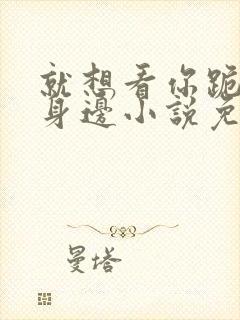 就想看你跪
身邊小說免
曼塔